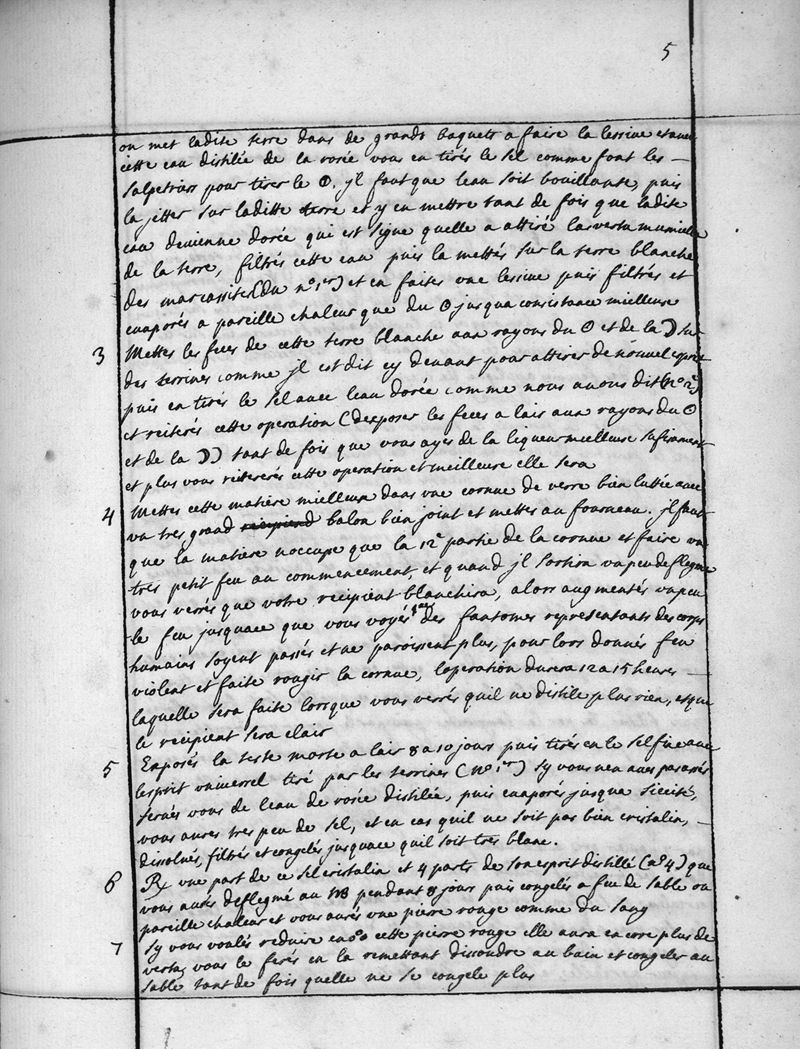 5
on met ladite terre dans de grands baquets a faire la lessive et avec
cette eau distilée de la rosée vous en tirés le sel comme font les —
salpetriers pour tirer le ⦶. jl faut que leau soit bouillante, puis
la jetter sur laditte terre et y en mettre tant de fois que ladite
eau devienne dorée qui est signe quelle a attiré la vertu mumielle
de la terre, filtrés cette eau puis la mettés sur la terre blanche
des marcassites (du n° 1er) et en faites une lessive puis filtrés et
evaporés a pareille chaleur que du ☉ jusqua consistance mielleuse
3 Mettes les feces de cette terre blanche aux rayons du ☉ et de la ☽ sur
des terrines comme jl est dit cy devant pour attirer de nouvel esprit
puis en tirés le sel avec leau dorée comme nous avons dit (n° 2e)
et reiterés cette operation (dexposer les feces a lair aux rayons du ☉
et de la ☽) tant de fois que vous ayés de la liqueur mielleuse sufisament
et plus vous reitererés cette operation et meilleure elle sera
4 Mettes cette matière mielleuse dans une cornue de verre bien luttée avec
un tres grand recipiend balon bien joint et mettes au fourneau. jl faut
que la matière noccupe que la 12e partie de la cornue et faire un
tres petit feu au commencement, et quand jl sortira un peu de flegme
vous verrés que votre recipient blanchira, alors augmentés un peu
le feu jusquace que vous voyés que des fantomes representants des corps
humains soyent passés et ne paroissent plus, pour lors donnés feu
violent et faite rougir la cornue, loperation durera 12 a 15 heures —
laquelle sera faite lorsque vous verrés quil ne distile plus rien, et que
le recipient sera clair
5 Exposés la teste morte a lair 8 a 10 jours puis tirés en le sel fixe avec
lesprit universel tiré par les terrines (n° 1er) sy vous nen avés pas assés
servés vous de leau de rosée distilée, puis evaporés jusqua siccité,
vous aures tres peu de sel, et en cas quil ne soit pas bien cristalin, —
dissolvés, filtrés et congelés jusquace quil soit tres blanc.
6 ℞ une part de ce sel cristalin et 4 parts de son esprit distillé (n° 4) que
vous aurés deflegmé au MB pendant 8 jours puis congelés a feu de sable ou
pareille chaleur et vous aurés une pierre rouge comme du sang
7 Sy vous voulés reduire en cette pierre rouge elle aura encore plus de
vertu, vous le ferés en la remettant dissoudre au bain et congeler au
sable tant de fois quelle ne se congele plus